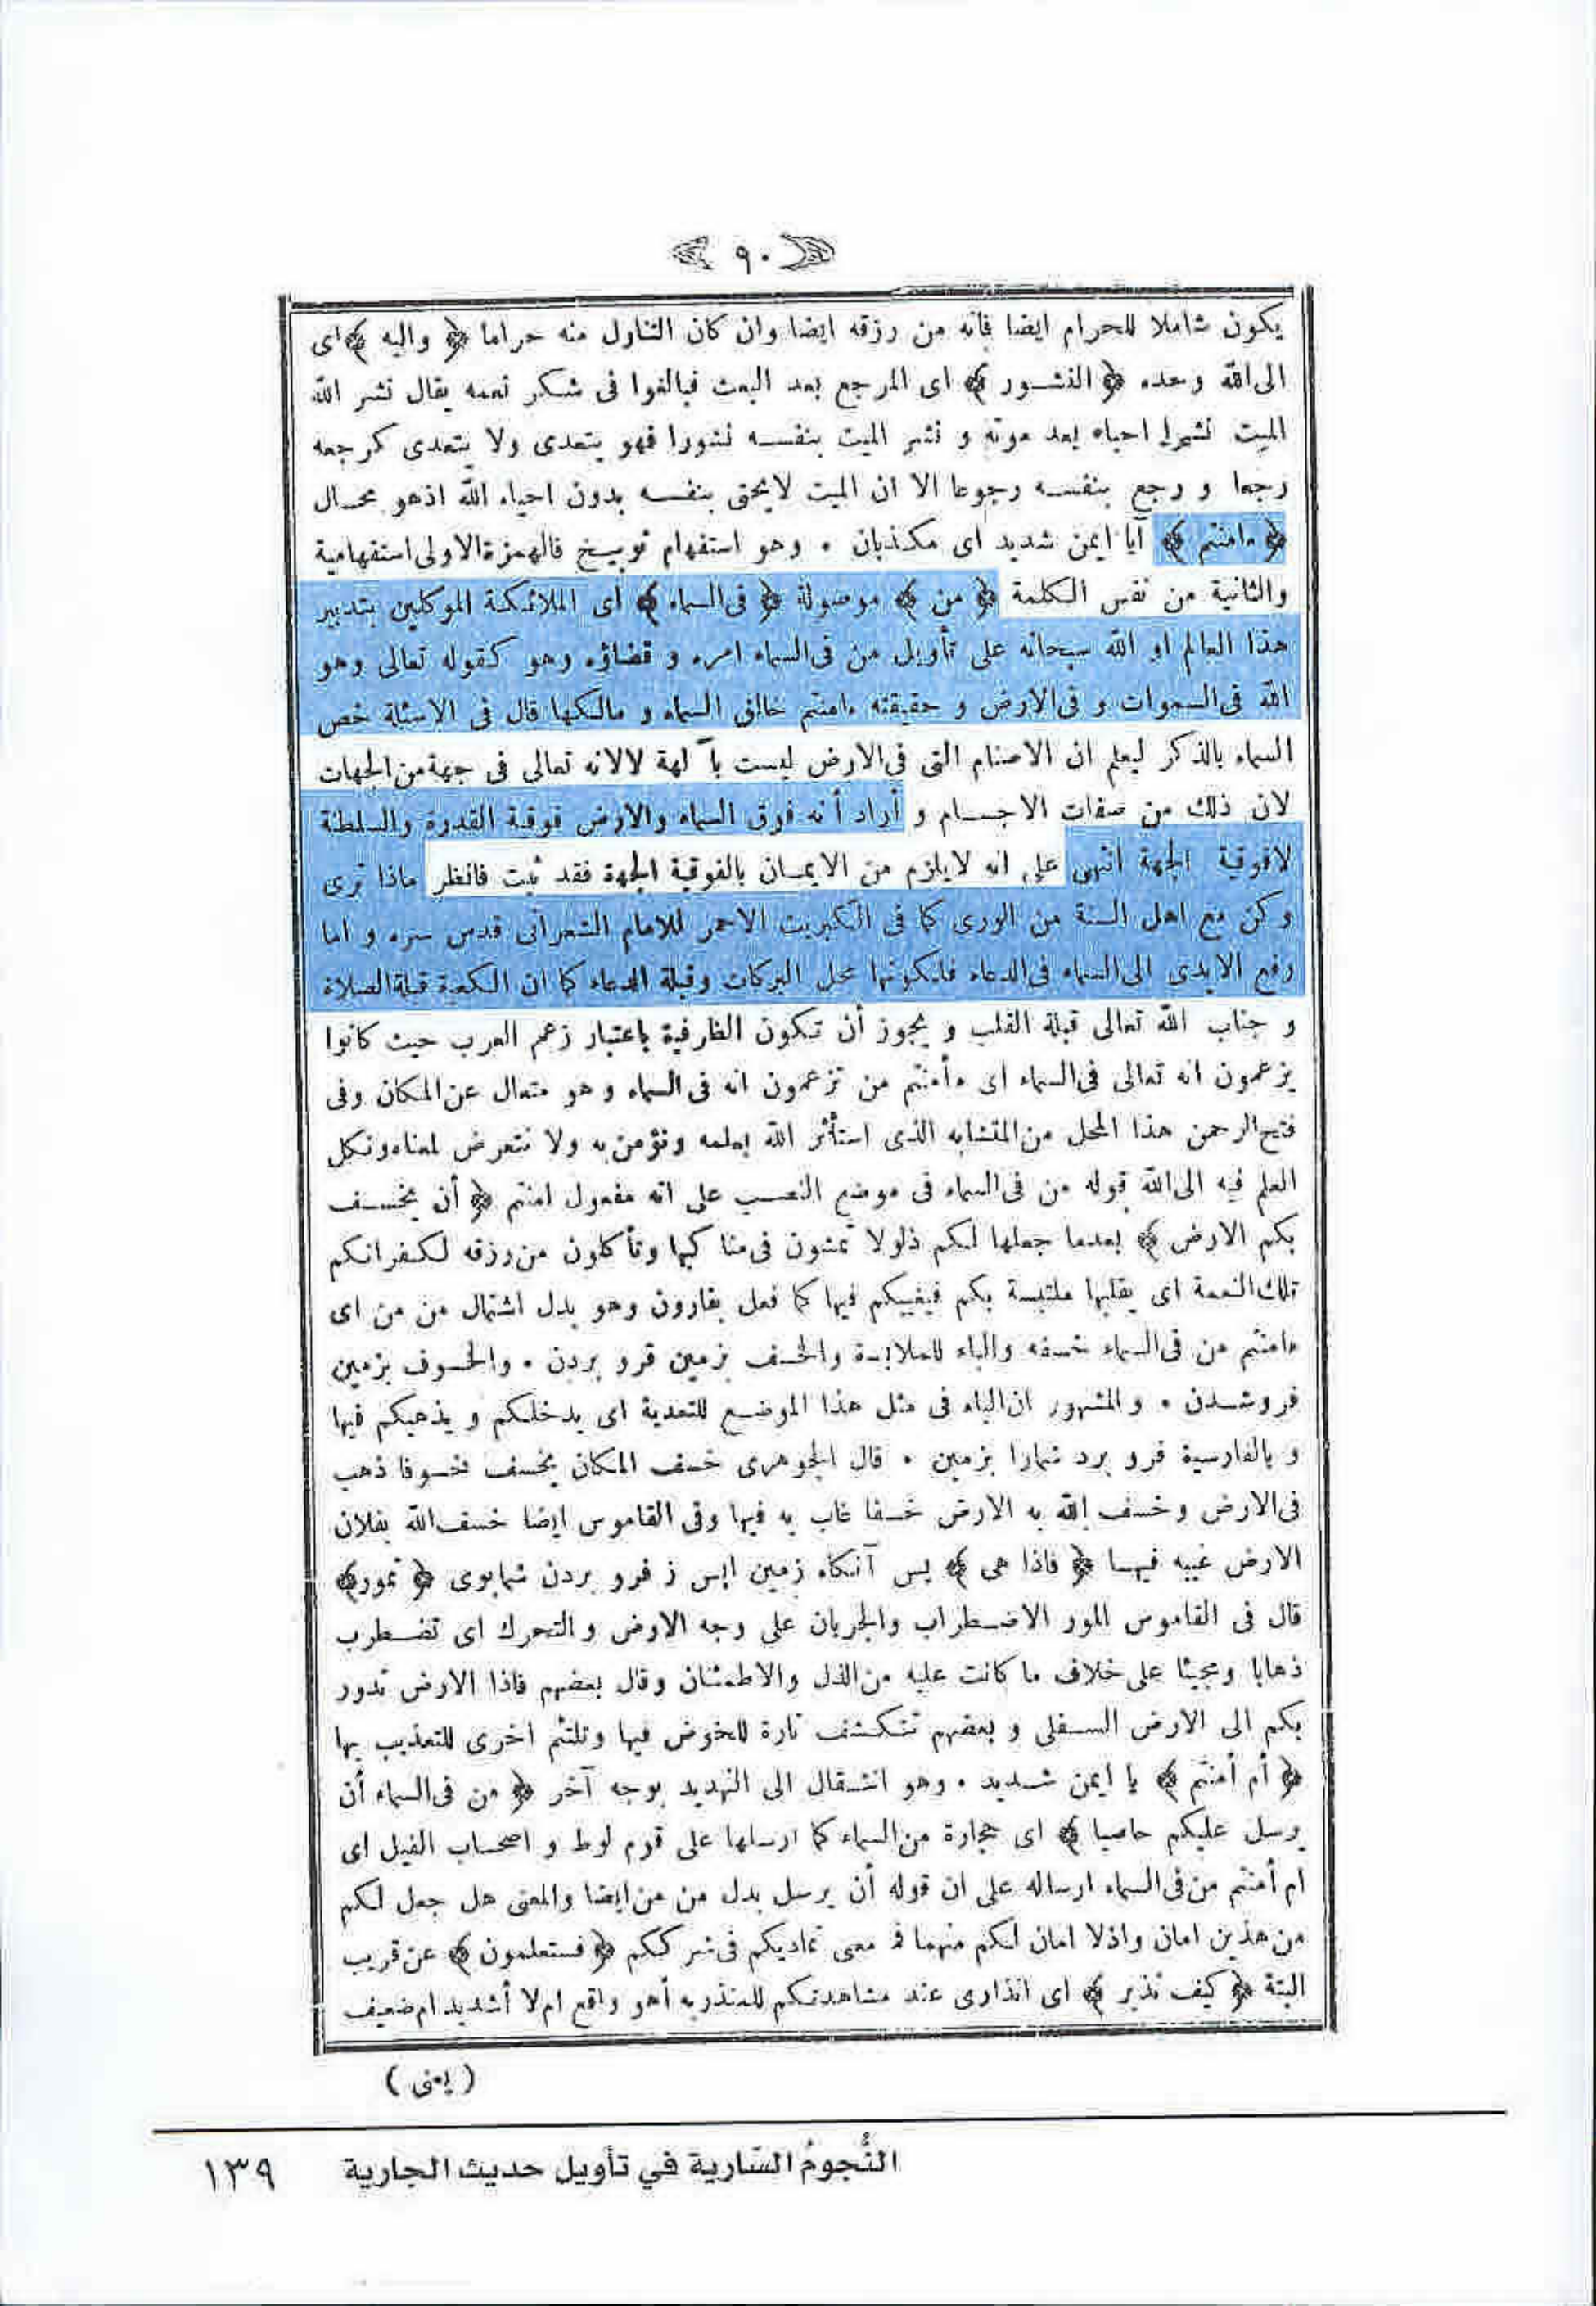 ﴿ ٩٠ ﴾
يكون شاملا للحرام ايضا فانه من رزقه ايضا وان كان التناول منه حراما ﴿ واليه ﴾ اى
الى الله وحده ﴿ النشور ﴾ اى المرجع بعد البعث فبالغوا فى شكر نعمه يقال نشر الله
الميت نشرا احياه بعد موته و نشر الميت بنفسه نشورا فهو يتعدى ولا يتعدى كرجعه
رجعا و رجع بنفسه رجوعا الا ان الميت لايحيى بنفسه بدون احياء الله اذهو محال
﴿ ءامنتم ﴾ آيا ايمن شديد اى مكذبان . وهو استفهام توبيخ فالهمزة الاولى استفهامية
والثانية من نفس الكلمة ﴿ من ﴾ موصولة ﴿ فى السماء ﴾ اى الملائكة الموكلين بتدبير
هذا العالم او الله سبحانه على تأويل من فى السماء امره و قضاؤه وهو كقوله تعالى وهو
الله فى السموات و فى الارض و حقيقته ءامنتم خالق السماء و مالكها قال فى الاسئلة خص
السماء بالذكر ليعلم ان الاصنام التى فى الارض ليست بآلهة لا لانه تعالى فى جهة من الجهات
لان ذلك من صفات الاجسام و أراد أنه فوق السماء والارض فوقية القدرة والسلطنة
لافوقية الجهة انتهى على انه لايلزم من الايمان بالفوقية الجهة فقد ثبت فانظر ماذا ترى
وكن مع اهل السنة من الورى كما فى الكبريت الاحمر للامام الشعرانى قدس سره و اما
رفع الايدى الى السماء فى الدعاء فلكونها محل البركات وقبلة الدعاء كما ان الكعبة قبلة الصلاة
و جناب الله تعالى قبلة القلب و يجوز أن تكون الظرفية باعتبار زعم العرب حيث كانوا
يزعمون انه تعالى فى السماء اى ءأمنتم من تزعمون انه فى السماء و هو متعال عن المكان وفى
فتح الرحمن هذا المحل من المتشابه الذى استأثر الله بعلمه ونؤمن به ولا نتعرض لمعناه ونكل
العلم فيه الى الله قوله من فى السماء فى موضع النصب على انه مفعول امنتم ﴿ أن يخسف
بكم الارض ﴾ بعدما جعلها لكم ذلولا تمشون فى مناكبها وتأكلون من رزقه لكفرانكم
تلك النعمة اى يقلبها ملتبسة بكم فيغيبكم فيها كما فعل بقارون وهو بدل اشتمال من من اى
ءامنتم من فى السماء خسفه والباء للملابسة والخسف بزمين فرو بردن . والخسوف بزمين
فروشدن . والمشهور ان الباء فى مثل هذا الموضع للتعدية اى يدخلكم و يذهبكم فيها
و بالفارسية فرو برد شمارا بزمين . قال الجوهرى خسف المكان يخسف خسوفا ذهب
فى الارض وخسف الله به الارض خسفا غاب به فيها وفى القاموس ايضا خسف الله بفلان
الارض غيبه فيها ﴿ فاذا هى ﴾ پس آنكاه زمين پس ز فرو بردن شمابوى ﴿ تمور ﴾
قال فى القاموس المور الاضطراب والجريان على وجه الارض والتحرك اى تضطرب
ذهابا ومجيئا على خلاف ما كانت عليه من الذل والاطمئنان وقال بعضهم فاذا الارض تدور
بكم الى الارض السفلى و بعضهم تنكشف تارة للخوض فيها وتلتئم اخرى للتعذيب بها
﴿ أم أمنتم ﴾ يا ايمن شديد . وهو انتقال الى التهديد بوجه آخر ﴿ من فى السماء أن
يرسل عليكم حاصبا ﴾ اى حجارة من السماء كما ارسلها على قوم لوط و اصحاب الفيل اى
ام أمنتم من فى السماء ارساله على ان قوله أن يرسل بدل من من ايضا والمعنى هل جعل لكم
من هذين امان واذلا امان لكم منهما فما معنى تماديكم فى شرككم ﴿ فستعلمون ﴾ عن قريب
البتة ﴿ كيف نذير ﴾ اى انذارى عند مشاهدتكم للمنذر به أهو واقع ام لا أشديد ام ضعيف
( يعنى )
النُّجومُ السَّارية في تأويل حديث الجارية ١٣٩